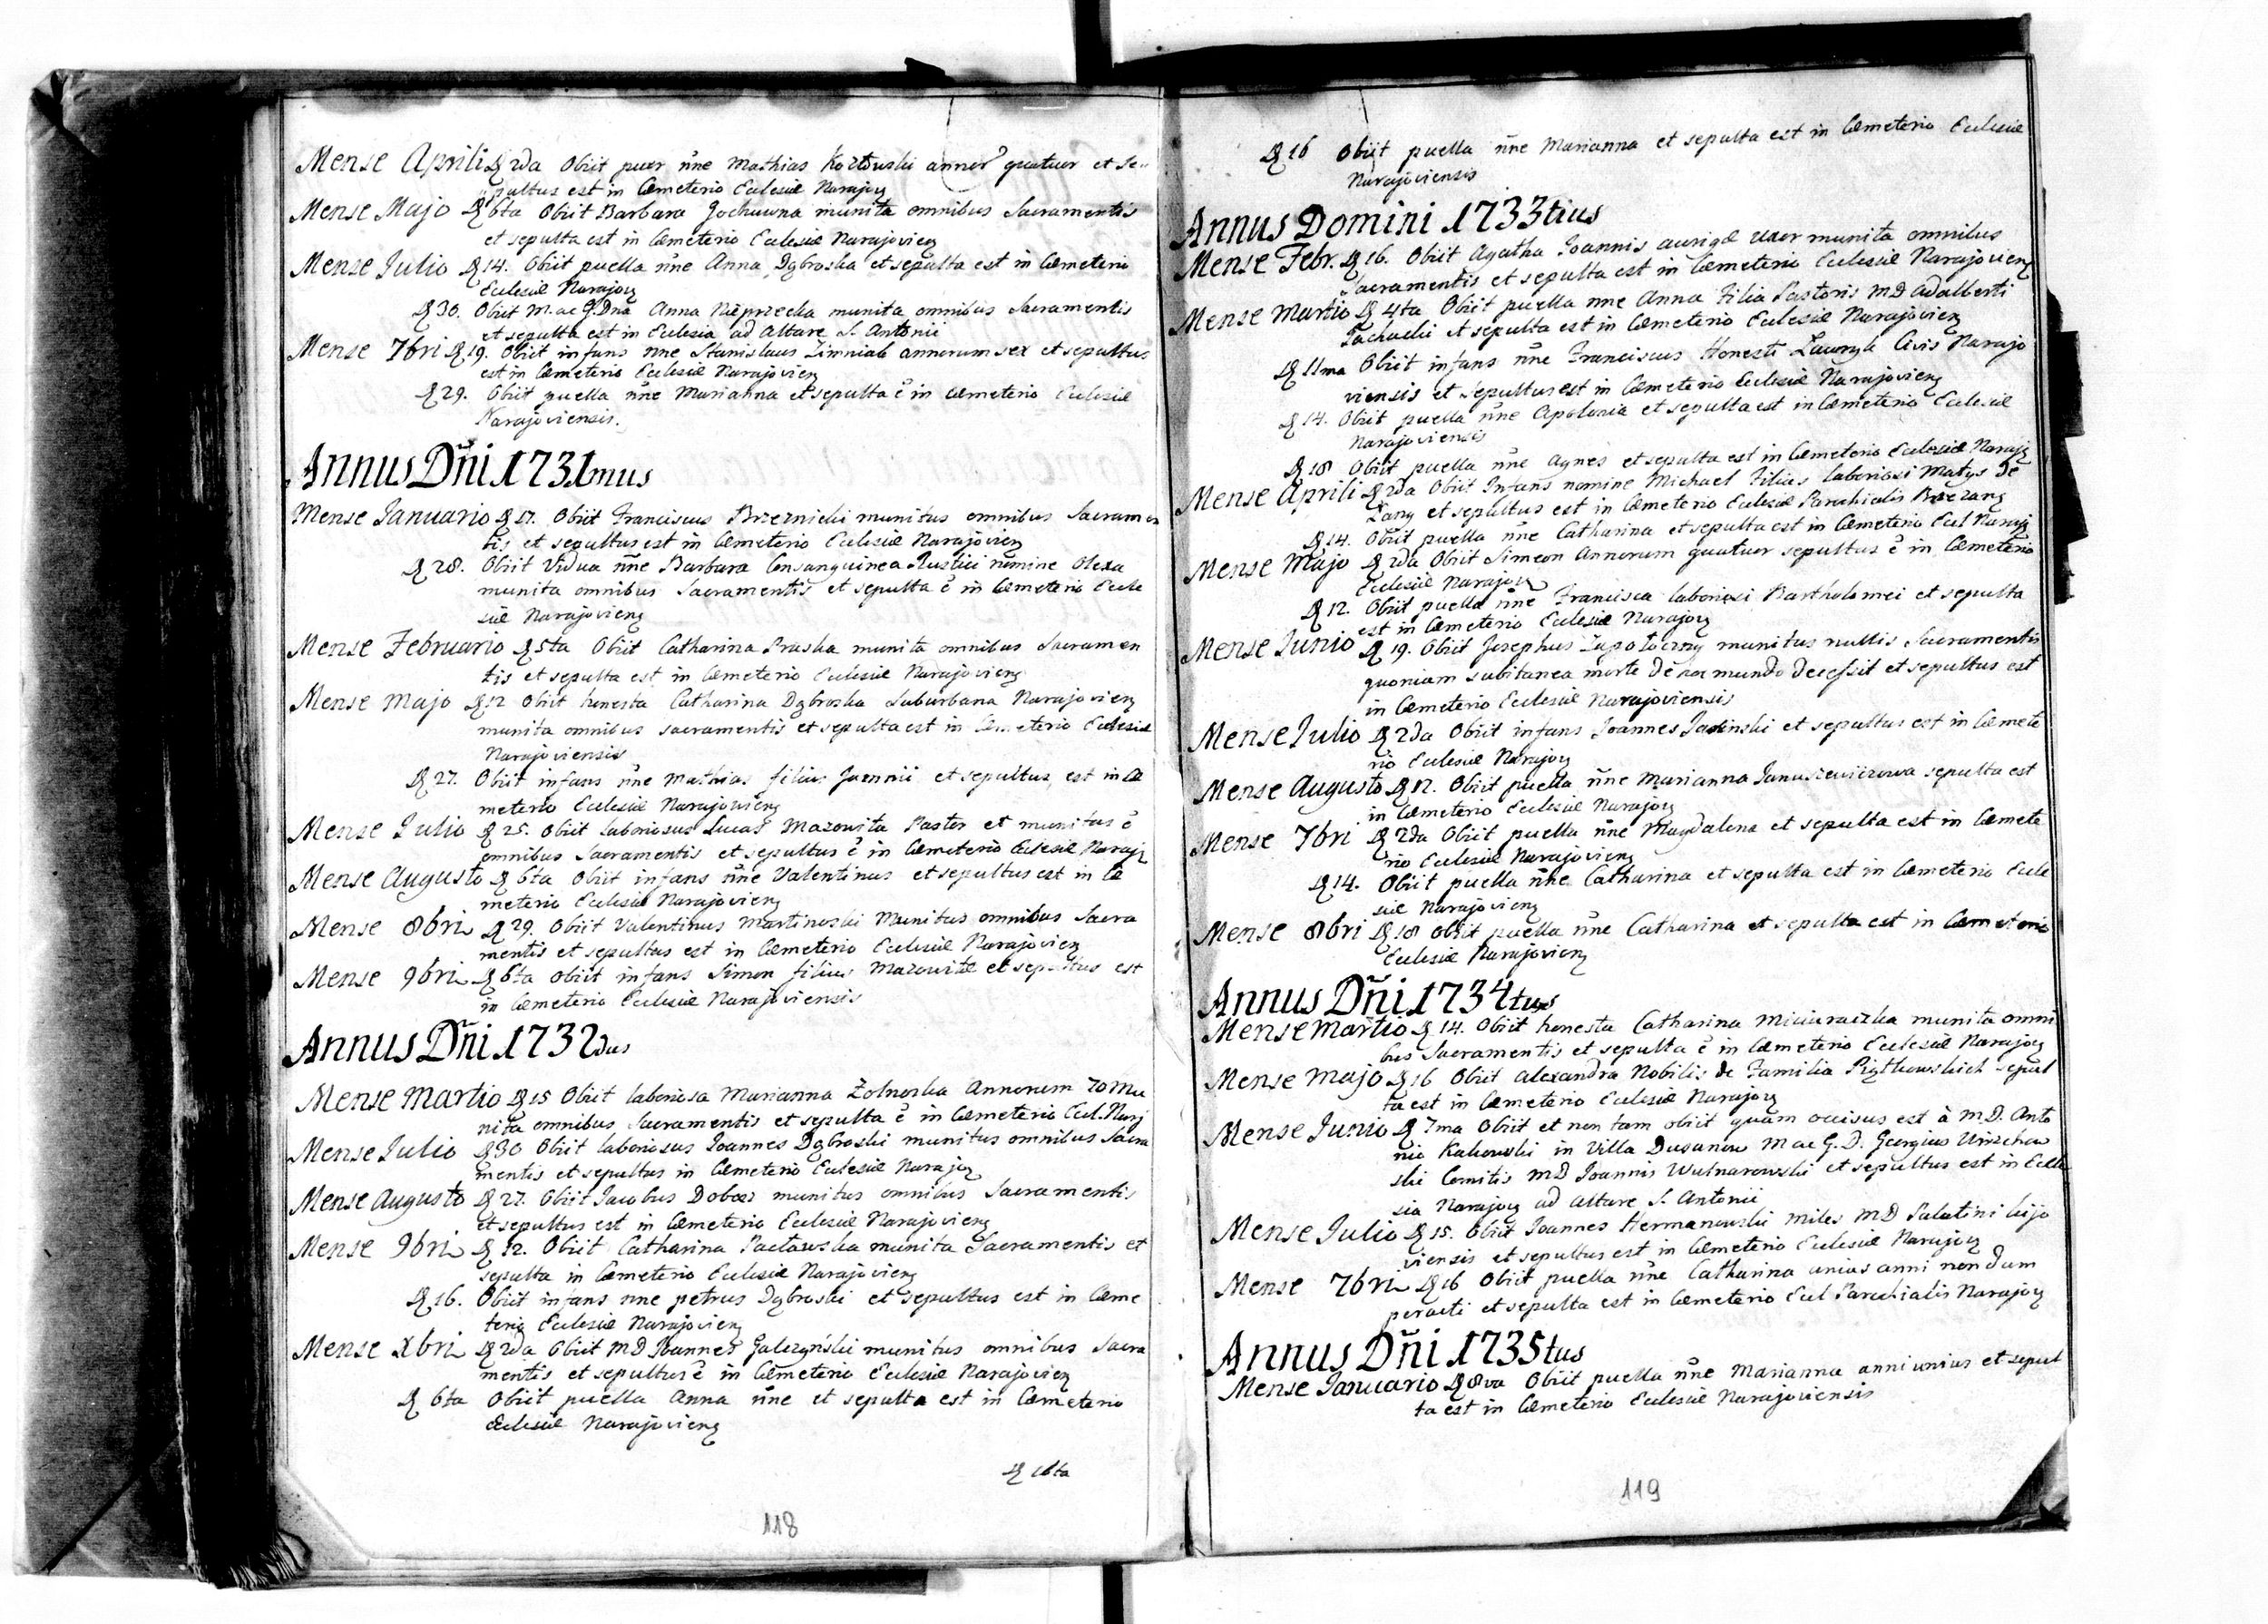 Mense Aprili D 2da Obiit puer nne Mathias Kozłowski annor quatuor et Se-
pultus est in Cæmeterio Eclesiæ Narajov
Mense Majo D 6ta Obiit Barbara munita omnibus Sacramentis
et sepulta est in Cæmeterio Eclesiæ Narajovien
Mense Julio D 14. Obiit puella nne Anna Dąbroska et sepulta est in Cæmeterio
Eclesiæ Narajov
D 30. Obiit M. ac G. Dna Anna munita omnibus Sacramentis
et sepulta est in Eclesia ad Altare S. Antonii
Mense 7bri D 19. Obiit infans nne Stanislaus Zimniak annorum sex et sepultus
est in Cæmeterio Eclesiæ Narajovien
D 29. Obiit puella nne Marianna et sepulta ẽ in Cæmeterio Eclesiæ
Narajoviensis.
Annus Dñi 1731mus
Mense Januario D 17. Obiit Franciscus Brzeznicki munitus omnibus Sacramen
tis et sepultus est in Cæmeterio Eclesiæ Narajovien
D 28. Obiit Vidua nne Barbara Consanguinea Rustici nomine Olexa
munita omnibus Sacramentis et sepulta ẽ in Cæmeterio Ecle
siæ Narajovien
Mense Februario D 5ta Obiit Catharina Praska munita omnibus Sacramen
tis et sepulta est in Cæmeterio Eclesiæ Narajovien
Mense Majo D 12 Obiit honesta Catharina Dąbroska Suburbana Narajovien
munita omnibus sacramentis et sepulta est in Cæmeterio Eclesiæ
Narajoviensis
D 27. Obiit infans nne Mathias filius et sepultus est in Cæ
meterio Eclesiæ Narajovien
Mense Julio D 25. Obiit laboriosus Lucas Mazowita Pastor et munitus ẽ
omnibus Sacramentis et sepultus ẽ in Cæmeterio Eclesiæ Naraj
Mense Augusto D 6ta Obiit infans nne Valentinus et sepultus est in Cæ
meterio Eclesiæ Narajovien
Mense 8bri D 29. Obiit Valentinus Martinoski Munitus omnibus Sacra
mentis et sepultus est in Cæmeterio Eclesiæ Narajovien
Mense 9bri D 6ta Obiit infans Simon filius Mazowitæ et sepultus est
in Cæmeterio Eclesiæ Narajoviensis
Annus Dñi 1732dus
Mense Martio D 15 Obiit laboriosa Marianna Żolnoska Annorum 70 Mu
nita omnibus Sacramentis et sepulta ẽ in Cæmeterio Ecl. Narj
Mense Julio D 30 Obiit laboriosus Joannes Dąbroski munitus omnibus Sacra
mentis et sepultus in Cæmeterio Eclesiæ Narajov
Mense Augusto D 27. Obiit Jacobus Dobosz munitus omnibus Sacramentis
et sepultus est in Cæmeterio Eclesiæ Narajovien
Mense 9bri D 12. Obiit Catharina Pacławska munita Sacramentis et
sepulta in Cæmeterio Eclesiæ Narajovien
D 16. Obiit infans nne petrus Dąbroski et sepultus est in Cæme
terio Eclesiæ Narajovien
Mense Xbri D 2da Obiit MD Joannes Galczyński munitus omnibus Sacra
mentis et sepultus ẽ in Cæmeterio Eclesiæ Narajovien
D 6ta Obiit puella Anna nne et sepulta est in Cæmeterio
Eclesiæ Narajovien
D 16ta
118
D 16 Obiit puella nne Marianna et sepulta est in Cæmeterio Eclesiæ
Narajoviensis
Annus Domini 1733tius
Mense Febr. D 16. Obiit Agatha Joannis aurigæ uxor munita omnibus
Sacramentis et sepulta est in Cæmeterio Eclesiæ Narajovien
Mense Martio D 4ta Obiit puella nne Anna Filia Pastoris MD Adalberti
et sepulta est in Cæmeterio Eclesiæ Narajovien
D 11ma Obiit infans nne Franciscus Honesti Ławryk Civis Narajo
viensis et sepultus est in Cæmeterio Eclesiæ Narajovien
D 14. Obiit puella nne Apolonia et sepulta est in Cæmeterio Eclesiæ
Narajoviensis
D 18 Obiit puella nne Agnes et sepulta est in Cæmeterio Eclesiæ Naraj
Mense Aprili D 2da Obiit Infans nomine Michael Filius laboriosi Matys de
Łany et sepultus est in Cæmeterio Eclesiæ Parochialis Brzezany
D 14. Obiit puella nne Catharina et sepulta est in Cæmeterio Ecl Naraj
Mense Majo D 2da Obiit Simeon Annorum quatuor sepultus ẽ in Cæmeterio
Ecclesiæ Narajov
D 12. Obiit puella nne Francisca laboriosi Bartholomei et sepulta
est in Cæmeterio Eclesiæ Narajov
Mense Junio D 19. Obiit Josephus Zapotoczny munitus nullis Sacramentis
quoniam subitanea morte de hoc mundo decessit et sepultus est
in Cæmeterio Eclesiæ Narajoviensis
Mense Julio D 2da Obiit infans Joannes Jasinski et sepultus est in Cæmete
rio Eclesiæ Narajov
Mense Augusto D 12. Obiit puella nne Marianna Januszewiczowa sepulta est
in Cæmeterio Eclesiæ Narajov
Mense 7bri D 2da Obiit puella nne Magdalena et sepulta est in Cæmete
rio Eclesiæ Narajovien
D 14. Obiit puella nne Catharina et sepulta est in Cæmeterio Ecle
siæ Narajovien
Mense 8bri D 18 Obiit puella nne Catharina et sepulta est in Cæmeterio
Eclesiæ Narajovien
Annus Dñi 1734tus
Mense Martio D 14. Obiit honesta Catharina munita omni
bus Sacramentis et sepulta ẽ in Cæmeterio Eclesiæ Narajov
Mense Majo D 16 Obiit Alexandra Nobilis de Familia sepul
ta est in Cæmeterio Eclesiæ Narajov
Mense Junio D 7ma Obiit et non tam obiit quam occisus est à M.D. Anto
nio Kakowski in Villa Dusanow M ac G. D. Georgius
ski Comitis MD Joannis Wulnarowski et sepultus est in Eccle
sia Narajov ad Altare S. Antonii
Mense Julio D 15. Obiit Joannes Hermanowski miles MD Palatini Kijo
viensis et sepultus est in Cæmeterio Eclesiæ Narajov
Mense 7bri D 16 Obiit puella nne Catharina unius anni nondum
peracti et sepulta est in Cæmeterio Ecl Parochialis Narajov
Annus Dñi 1735tus
Mense Januario D 8va Obiit puella nne Marianna anni unius et sepul
ta est in Cæmeterio Eclesiæ Narajoviensis
119